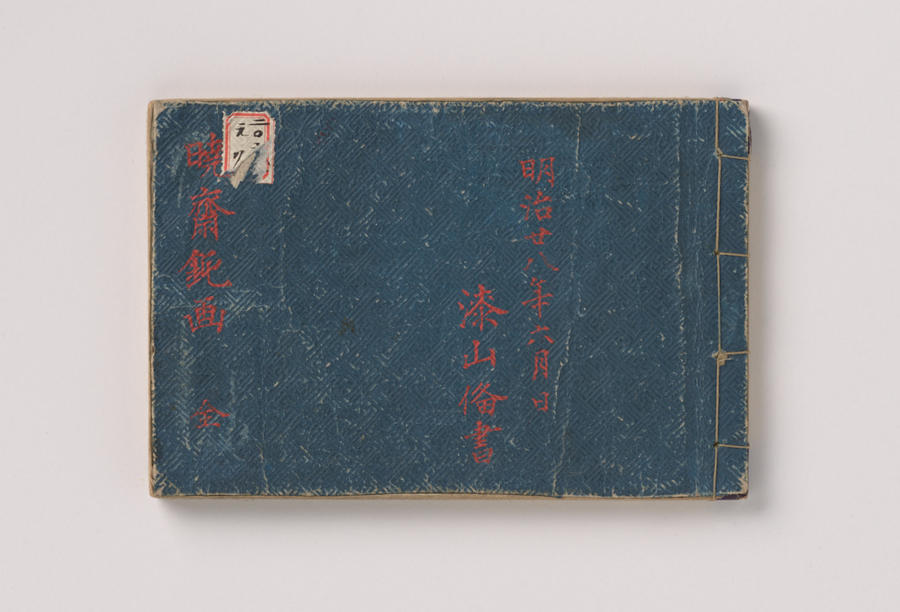 明治廿八年六月 日
漆山脩書
暁齋鈍画 全
二〇
え